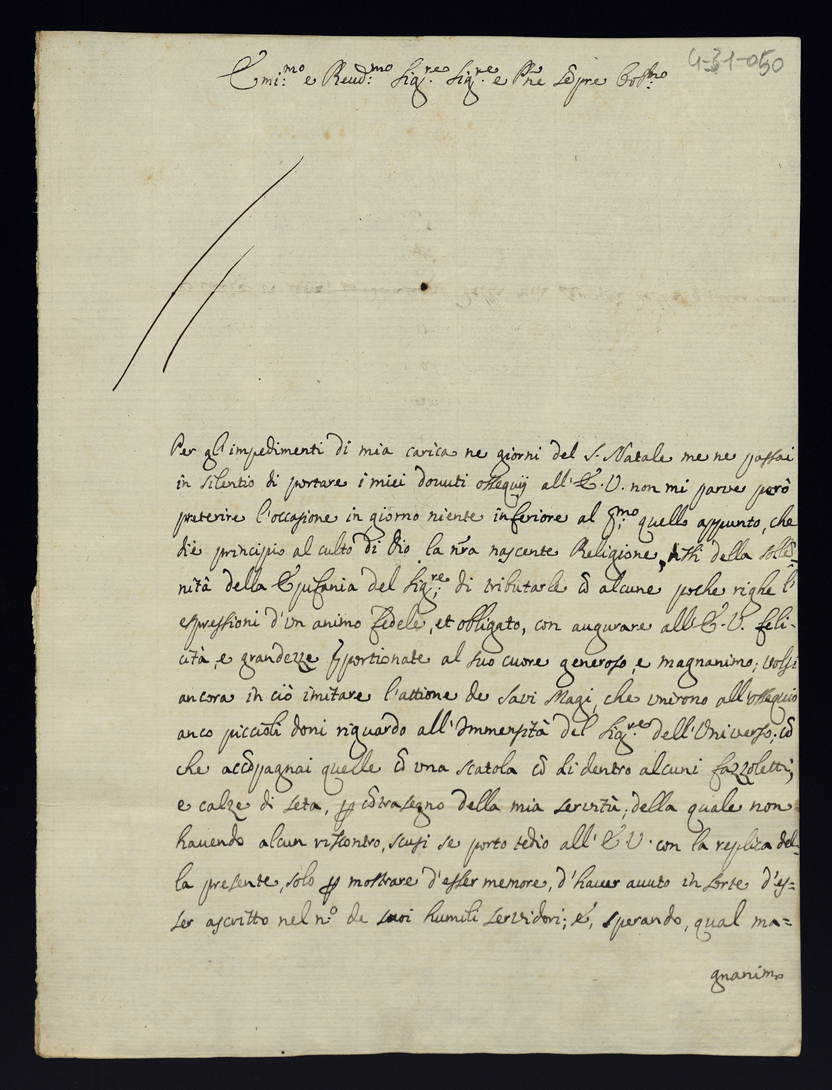 4-31-050
Emi:mo e Reud:mo Sig:re Sig:re e Pne sẽpre Col:mo
Per gl'impedimenti di mia carica ne giorni del S. Natale me ne passai
in silentio di portare i miei douuti ossequij all'E.V. non mi parve però
preterire l'occasione in giorno niente inferiore al p:mo quello appunto, che
diè principio al culto di Dio la nr̃a nascente Religione, della sollẽ=
nità della Epifania del Sig:re di tributarle cõ alcune poche righe l'
espressioni d'vn animo fedele, et obligato, con augurare all'E.V. feli-
cità, e grandezze pportionate al suo cuore generoso, e magnanimo; volsi
ancora in ciò imitare l'attione de Savi Magi, che vnirono all'ossequio
anco piccioli doni riguardo all'Immensità del Sig:re dell'Universo; cõ
che accõpagnai quelle cõ vna scatola cõ di dentro alcuni fazzoletti,
e calze di seta, p cõtrasegno della mia servitù; della quale non
hauendo alcun riscontro, scusi se porto tedio all'E.V. con la replica del-
la presente, solo p mostrare d'esser memore, d'hauer auuto in sorte d'es=
ser ascritto nel n:o de suoi humili servidori; e, sperando, qual ma=
gnanimo